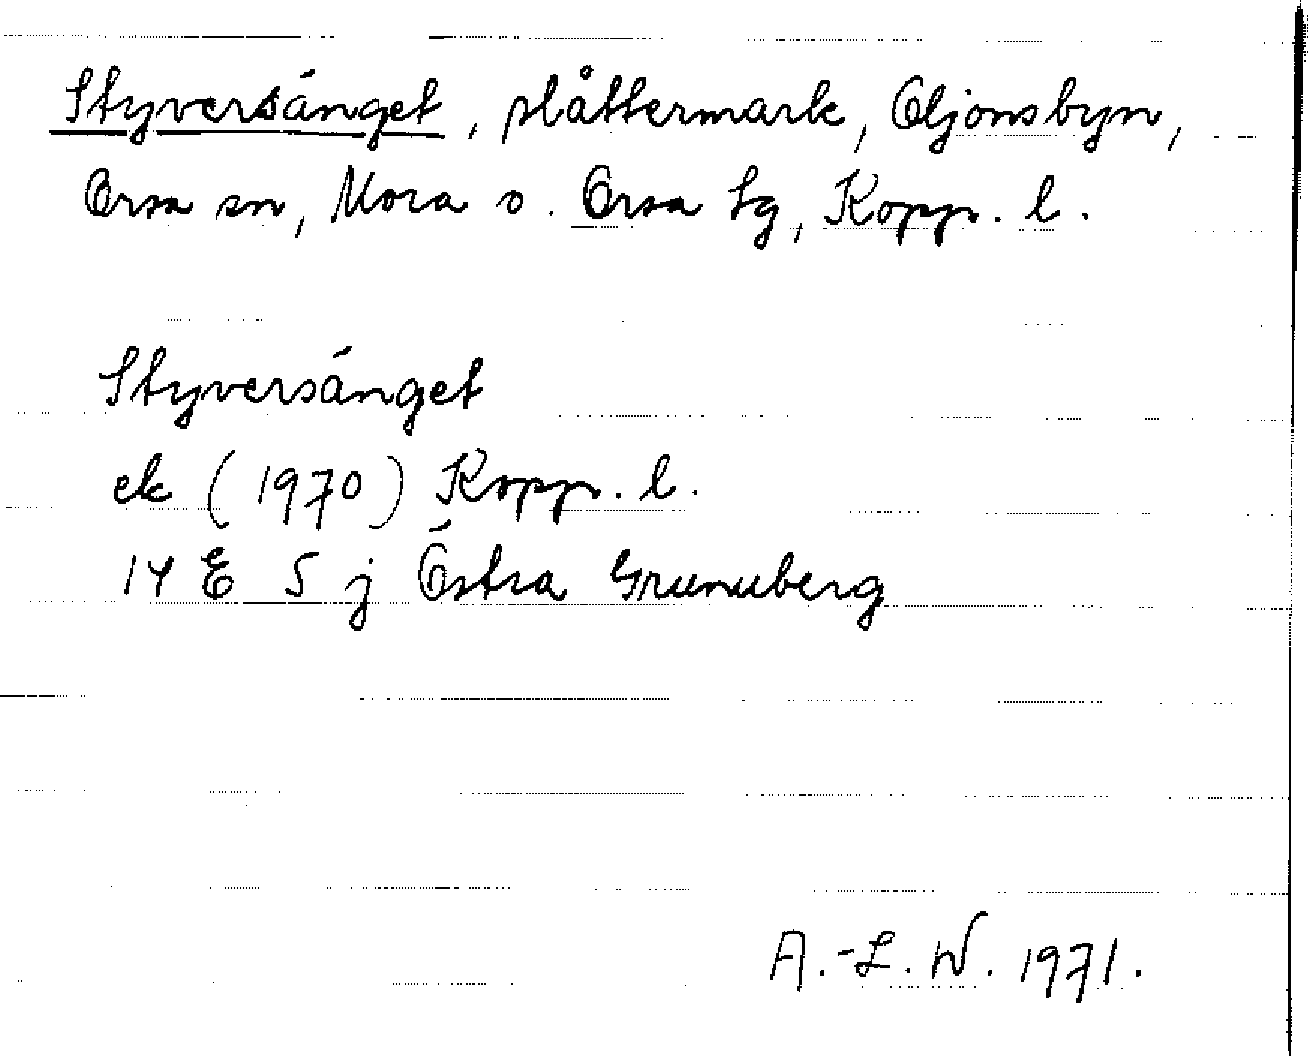 Styversänget, slåttermark, Oljonsbyn,
Orsa sn, Mora o. Orsa tg, Kopp. l.
Styversänget
ek (1970) Kopp. l.
14 E 5 j Östra Grunuberg
A.-L. W. 1971.